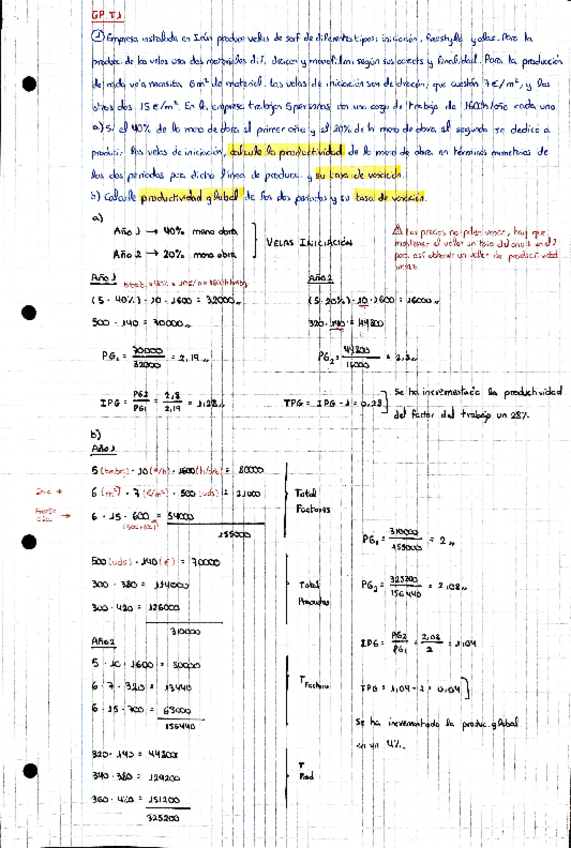 GP. T.1
① Empresa instalada en Irún produce velas de surf de diferentes tipos: iniciación, freestyle y olas. Para la
produc. de las velas usa dos materiales dif. dacron y monofilm según sus costs y finalidad. Para la producción
de cada vela necesita 6m² de material. Las velas de iniciación son de dacron, que cuestan 7€/m², y las
otras dos 15€/m². En la empresa trabajan 5 personas con una carga de trabajo de 1600h/año cada uno
a) Si el 40% de la mano de obra el primer año y el 20% de la mano de obra el segundo se dedicó a
producir las velas de iniciación, calcule la productividad de la mano de obra en términos monetarios de
los dos períodos para dicha línea de produc. y su tasa de variación.
b) Calcule productividad global de los dos períodos y su tasa de variación.
a)
Año 1 → 40% mano obra
Año 2 → 20% mano obra
VELAS INICIACIÓN
⚠ Los precios no pueden variar, hay que
mantener el valor en base del año 1 en el 2
para así obtener un valor de productividad
Año 1
(5 · 40%) · 10 · 1600 = 32000
500 · 140 = 70000
PG₁ = 70000/32000 = 2,19
Año 2
(5 · 20%) · 10 · 1600 = 16000
320 · 140 = 44800
PG₂ = 44800/16000 = 2,8
IPG = PG2/PG1 = 2,8/2,19 = 1,28
TPG = IPG - 1 = 0,28
Se ha incrementado la productividad
del factor del trabajo un 28%.
b)
Año 1
5 (trabs) · 10 (€/h) · 1600 (h/año) = 80000
6 (m²) · 7 (€/m²) · 500 (uds) = 21000
6 · 15 · 600 = 54000
155000
Total
Factores
500 (uds) · 140 (€) = 70000
300 · 380 = 114000
300 · 420 = 126000
310000
Total
Productos
PG₁ = 310000/155000 = 2
PG₂ = 325200/156440 = 2,08
IPG = PG2/PG1 = 2,08/2 = 1,04
TPG = 1,04 - 1 = 0,04
Se ha incrementado la produc. global
en un 4%.
Año 2
5 · 10 · 1600 = 80000
6 · 7 · 320 = 13440
6 · 15 · 700 = 63000
156440
T Factores
320 · 140 = 44800
340 · 380 = 129200
360 · 420 = 151200
325200
T
Prod